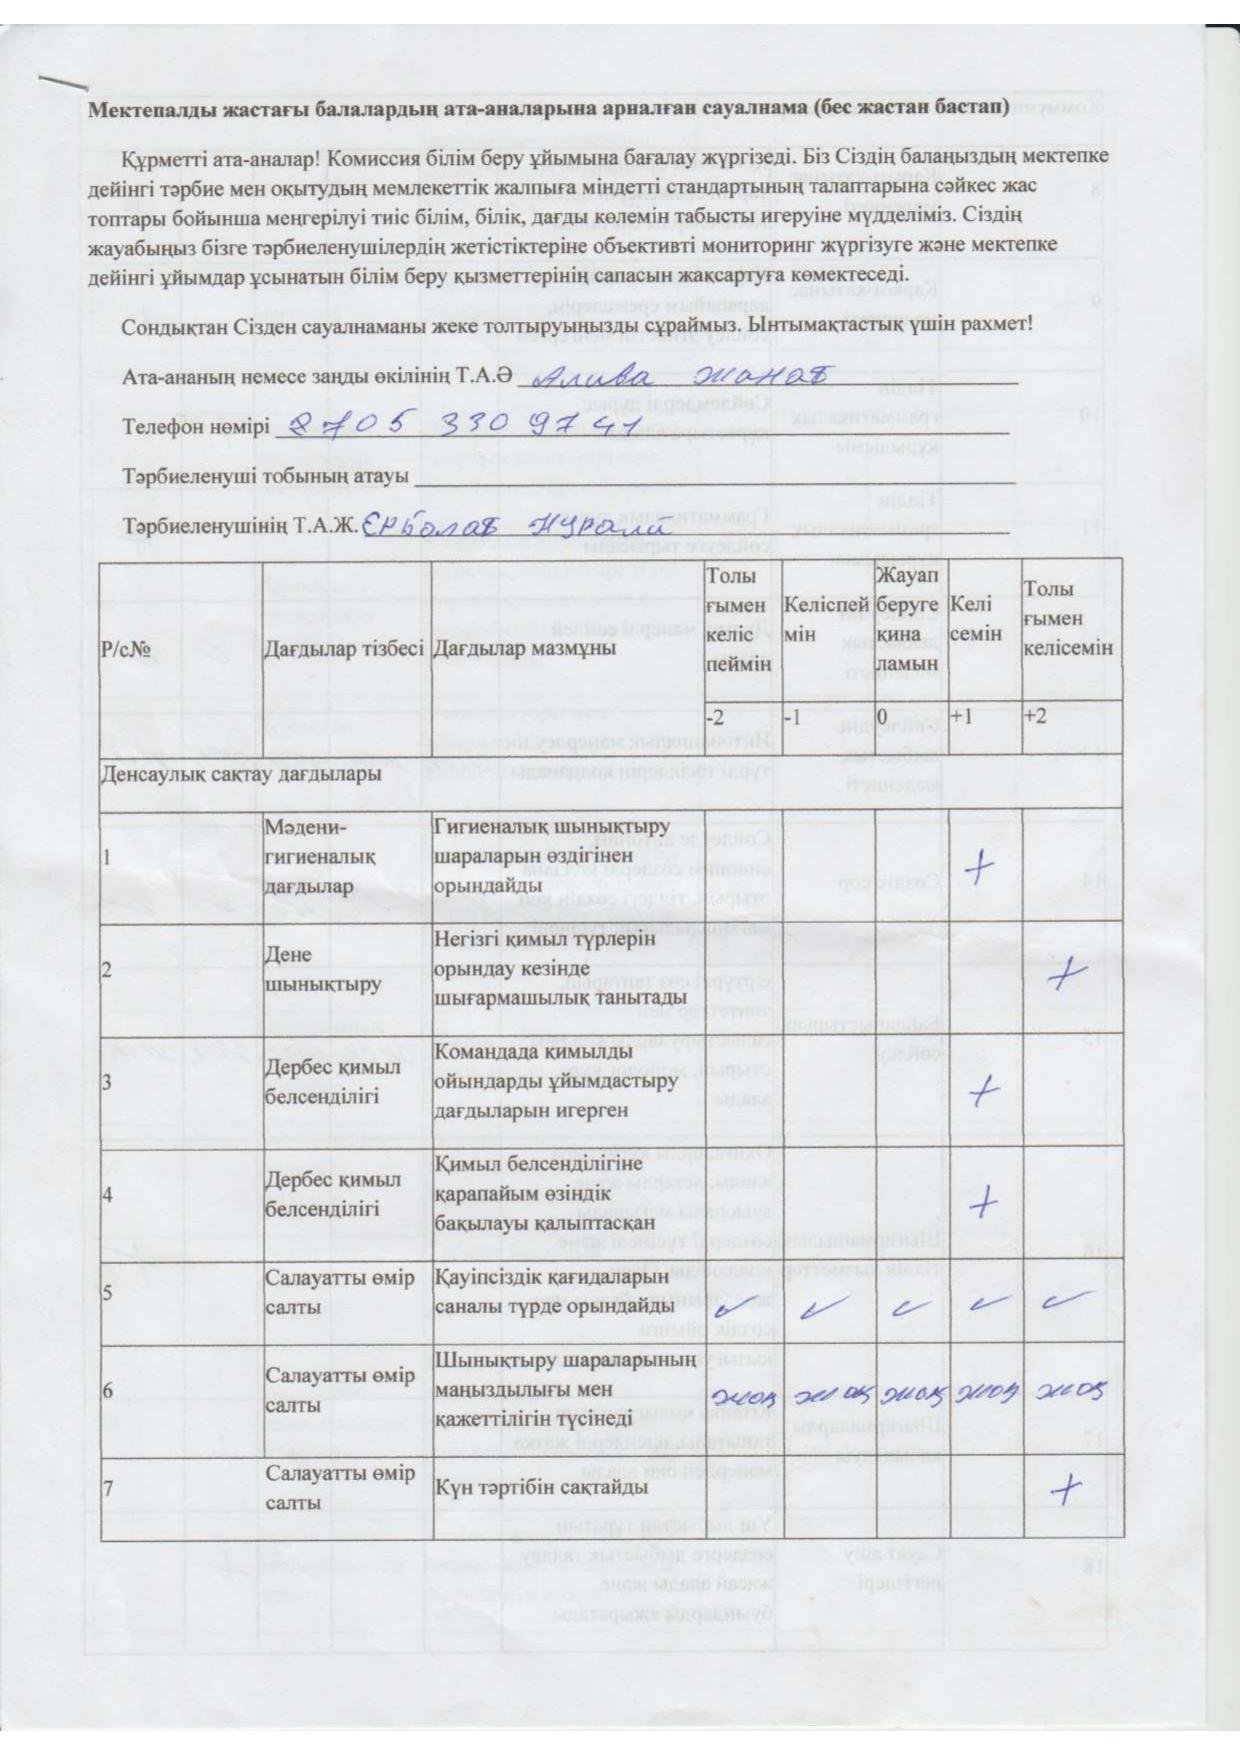 Мектепалды жастағы балалардың ата-аналарына арналған сауалнама (бес жастан бастап)
Құрметті ата-аналар! Комиссия білім беру ұйымына бағалау жүргізеді. Біз Сіздің балаңыздың мектепке
дейінгі тәрбие мен оқытудың мемлекеттік жалпыға міндетті стандартының талаптарына сәйкес жас
топтары бойынша меңгерілуі тиіс білім, білік, дағды көлемін табысты игеруіне мүдделіміз. Сіздің
жауабыңыз бізге тәрбиеленушілердің жетістіктеріне объективті мониторинг жүргізуге және мектепке
дейінгі ұйымдар ұсынатын білім беру қызметтерінің сапасын жақсартуға көмектеседі.
Сондықтан Сізден сауалнаманы жеке толтыруыңызды сұраймыз. Ынтымақтастық үшін рахмет!
Ата-ананың немесе заңды өкілінің Т.А.Ә Алива Жанат
Телефон нөмірі 8705 330 9741
Тәрбиеленуші тобының атауы
Тәрбиеленушінің Т.А.Ж. Ерболат Нурали
Р/с№ Дағдылар тізбесі Дағдылар мазмұны
Толы
ғымен
келіс
пеймін
Келіспей
мін
Жауап
беруге
қина
ламын
Келі
семін
Толы
ғымен
келісемін
-2 -1 0 +1 +2
Денсаулық сақтау дағдылары
1
Мәдени-
гигиеналық
дағдылар
Гигиеналық шынықтыру
шараларын өздігінен
орындайды
+
2
Дене
шынықтыру
Негізгі қимыл түрлерін
орындау кезінде
шығармашылық танытады
+
3
Дербес қимыл
белсенділігі
Командада қимылды
ойындарды ұйымдастыру
дағдыларын игерген
+
4
Дербес қимыл
белсенділігі
Қимыл белсенділігіне
қарапайым өзіндік
бақылауы қалыптасқан
+
5
Салауатты өмір
салты
Қауіпсіздік қағидаларын
саналы түрде орындайды
✓ ✓ ✓ ✓ ✓
6
Салауатты өмір
салты
Шынықтыру шараларының
маңыздылығы мен
қажеттілігін түсінеді
жоқ жоқ жоқ жоқ жоқ
7
Салауатты өмір
салты
Күн тәртібін сақтайды
+